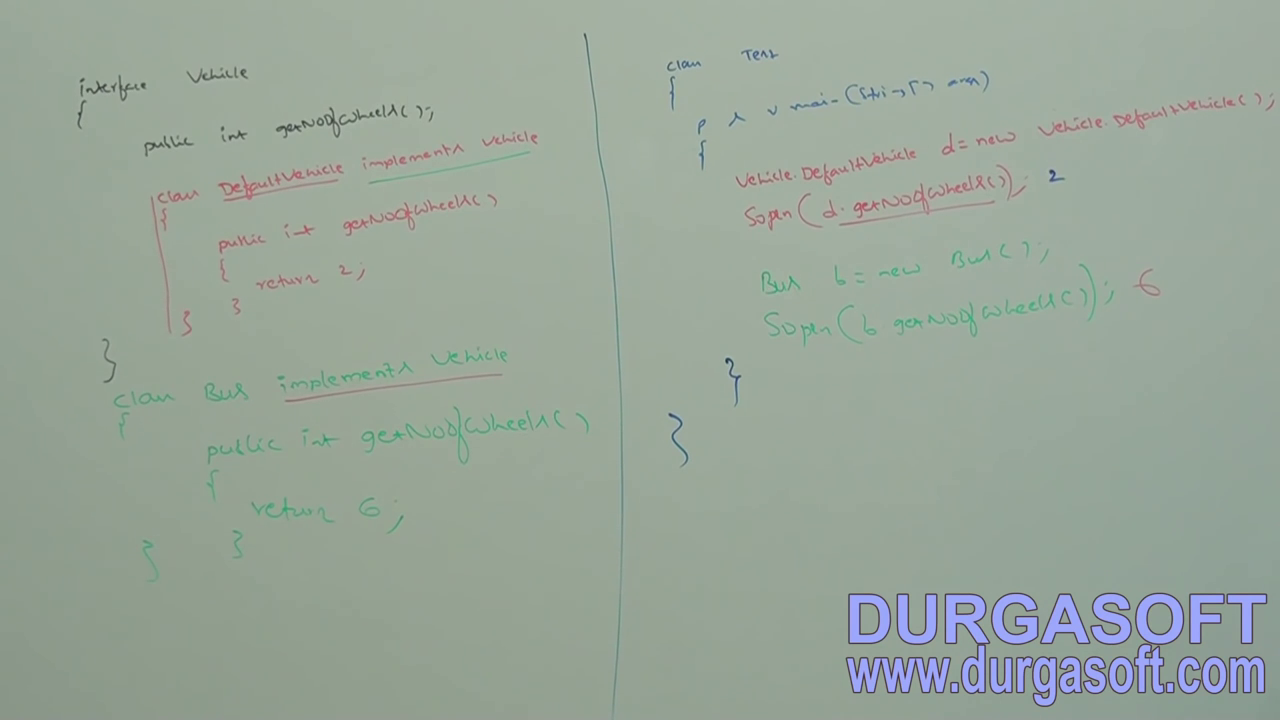 interface Vehicle
{
public int getNoOfWheels();
class DefaultVehicle implements Vehicle
{
public int getNoOfWheels()
{
return 2;
}
}
}
class Bus implements Vehicle
{
public int getNoOfWheels()
{
return 6;
}
}
class Test
{
p s v main(String[] args)
{
Vehicle.DefaultVehicle d = new Vehicle.DefaultVehicle();
Sopln(d.getNoOfWheels()); 2
Bus b = new Bus();
Sopln(b.getNoOfWheels()); 6
}
}
DURGASOFT
www.durgasoft.com